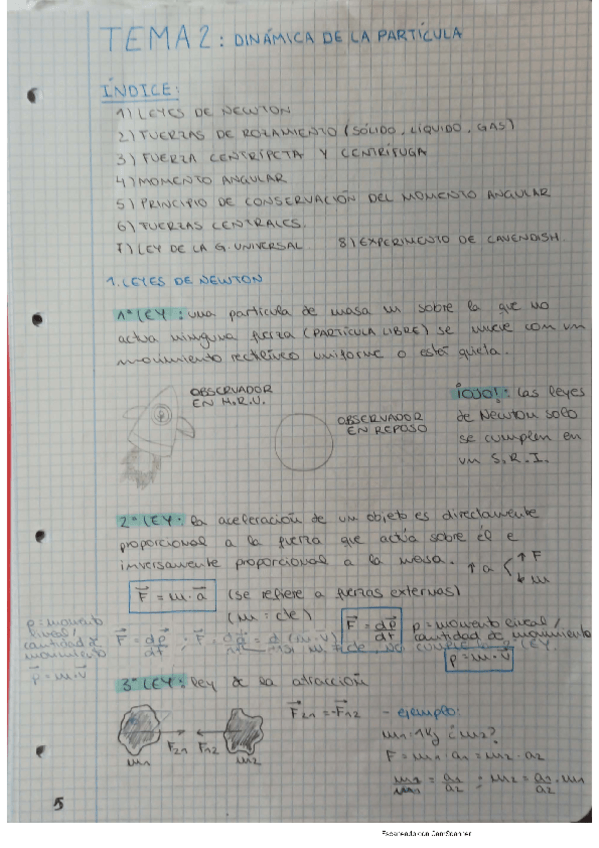 TEMA 2: DINÁMICA DE LA PARTÍCULA
ÍNDICE:
1) LEYES DE NEWTON
2) FUERZAS DE ROZAMIENTO (SÓLIDO, LÍQUIDO, GAS)
3) FUERZA CENTRÍPETA Y CENTRÍFUGA
4) MOMENTO ANGULAR
5) PRINCIPIO DE CONSERVACIÓN DEL MOMENTO ANGULAR
6) FUERZAS CENTRALES.
7) LEY DE LA G. UNIVERSAL 8) EXPERIMENTO DE CAVENDISH
1. LEYES DE NEWTON
1ª LEY: una partícula de masa m sobre la que no
actua ninguna fuerza (PARTÍCULA LIBRE) se mueve con un
movimiento rectilíneo uniforme o está quieta.
OBSERVADOR
EN M.R.U.
OBSERVADOR
EN REPOSO
¡OJO!: Las leyes
de Newton solo
se cumplen en
un S.R.I.
2ª LEY: la aceleración de un objeto es directamente
proporcional a la fuerza que actúa sobre él e
inversamente proporcional a la masa. ↑a ↑F ↓m
F⃗ = m·a⃗ (se refiere a fuerzas externas)
(m: cte)
F⃗ = dp⃗/dt p = momento lineal/
cantidad de movimiento
p⃗ = m·v⃗
p = momento
lineal/
cantidad de
movimiento
p⃗ = m·v⃗
F⃗ = dp⃗/dt
3ª LEY: ley de la atracción
F⃗21 = -F⃗12
F21 F12
m1 m2
- ejemplo:
m1: 1Kg ¿m2?
F = m1 · a1 = m2 · a2
m2/m1 = a1/a2 ; m2 = a1/a2 · m1
5
Escaneado con CamScanner